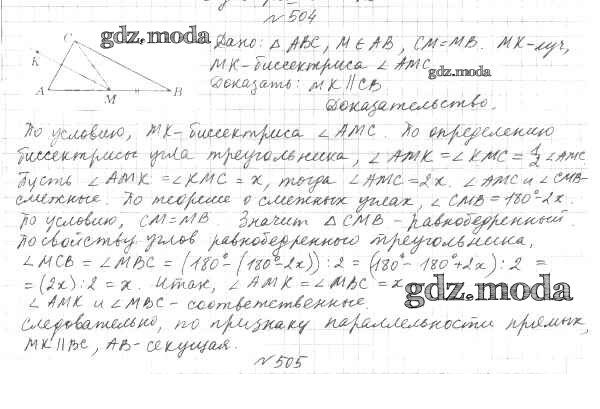 №504
C
gdz.moda
K
A
M
B
Дано: △ABC, M∈AB, CM=MB. MK-луч,
MK-биссектриса ∠AMC.
gdz.moda
Доказать: MK∥CB
Доказательство.
По условию, MK-биссектриса ∠AMC. По определению
биссектрисы угла треугольника, ∠AMK=∠KMC=1/2∠AMC
Пусть ∠AMK=∠KMC=x, тогда ∠AMC=2x. ∠AMC и ∠CMB-
смежные. По теореме о смежных углах, ∠CMB=180°-2x.
По условию, CM=MB. Значит △CMB-равнобедренный.
По свойству углов равнобедренного треугольника,
∠MCB=∠MBC=(180°-(180°-2x)):2=(180°-180°+2x):2=
=(2x):2=x. Итак, ∠AMK=∠MBC=x
gdz.moda
∠AMK и ∠MBC-соответственные.
следовательно, по признаку параллельности прямых,
MK∥BC, AB-секущая.
№505